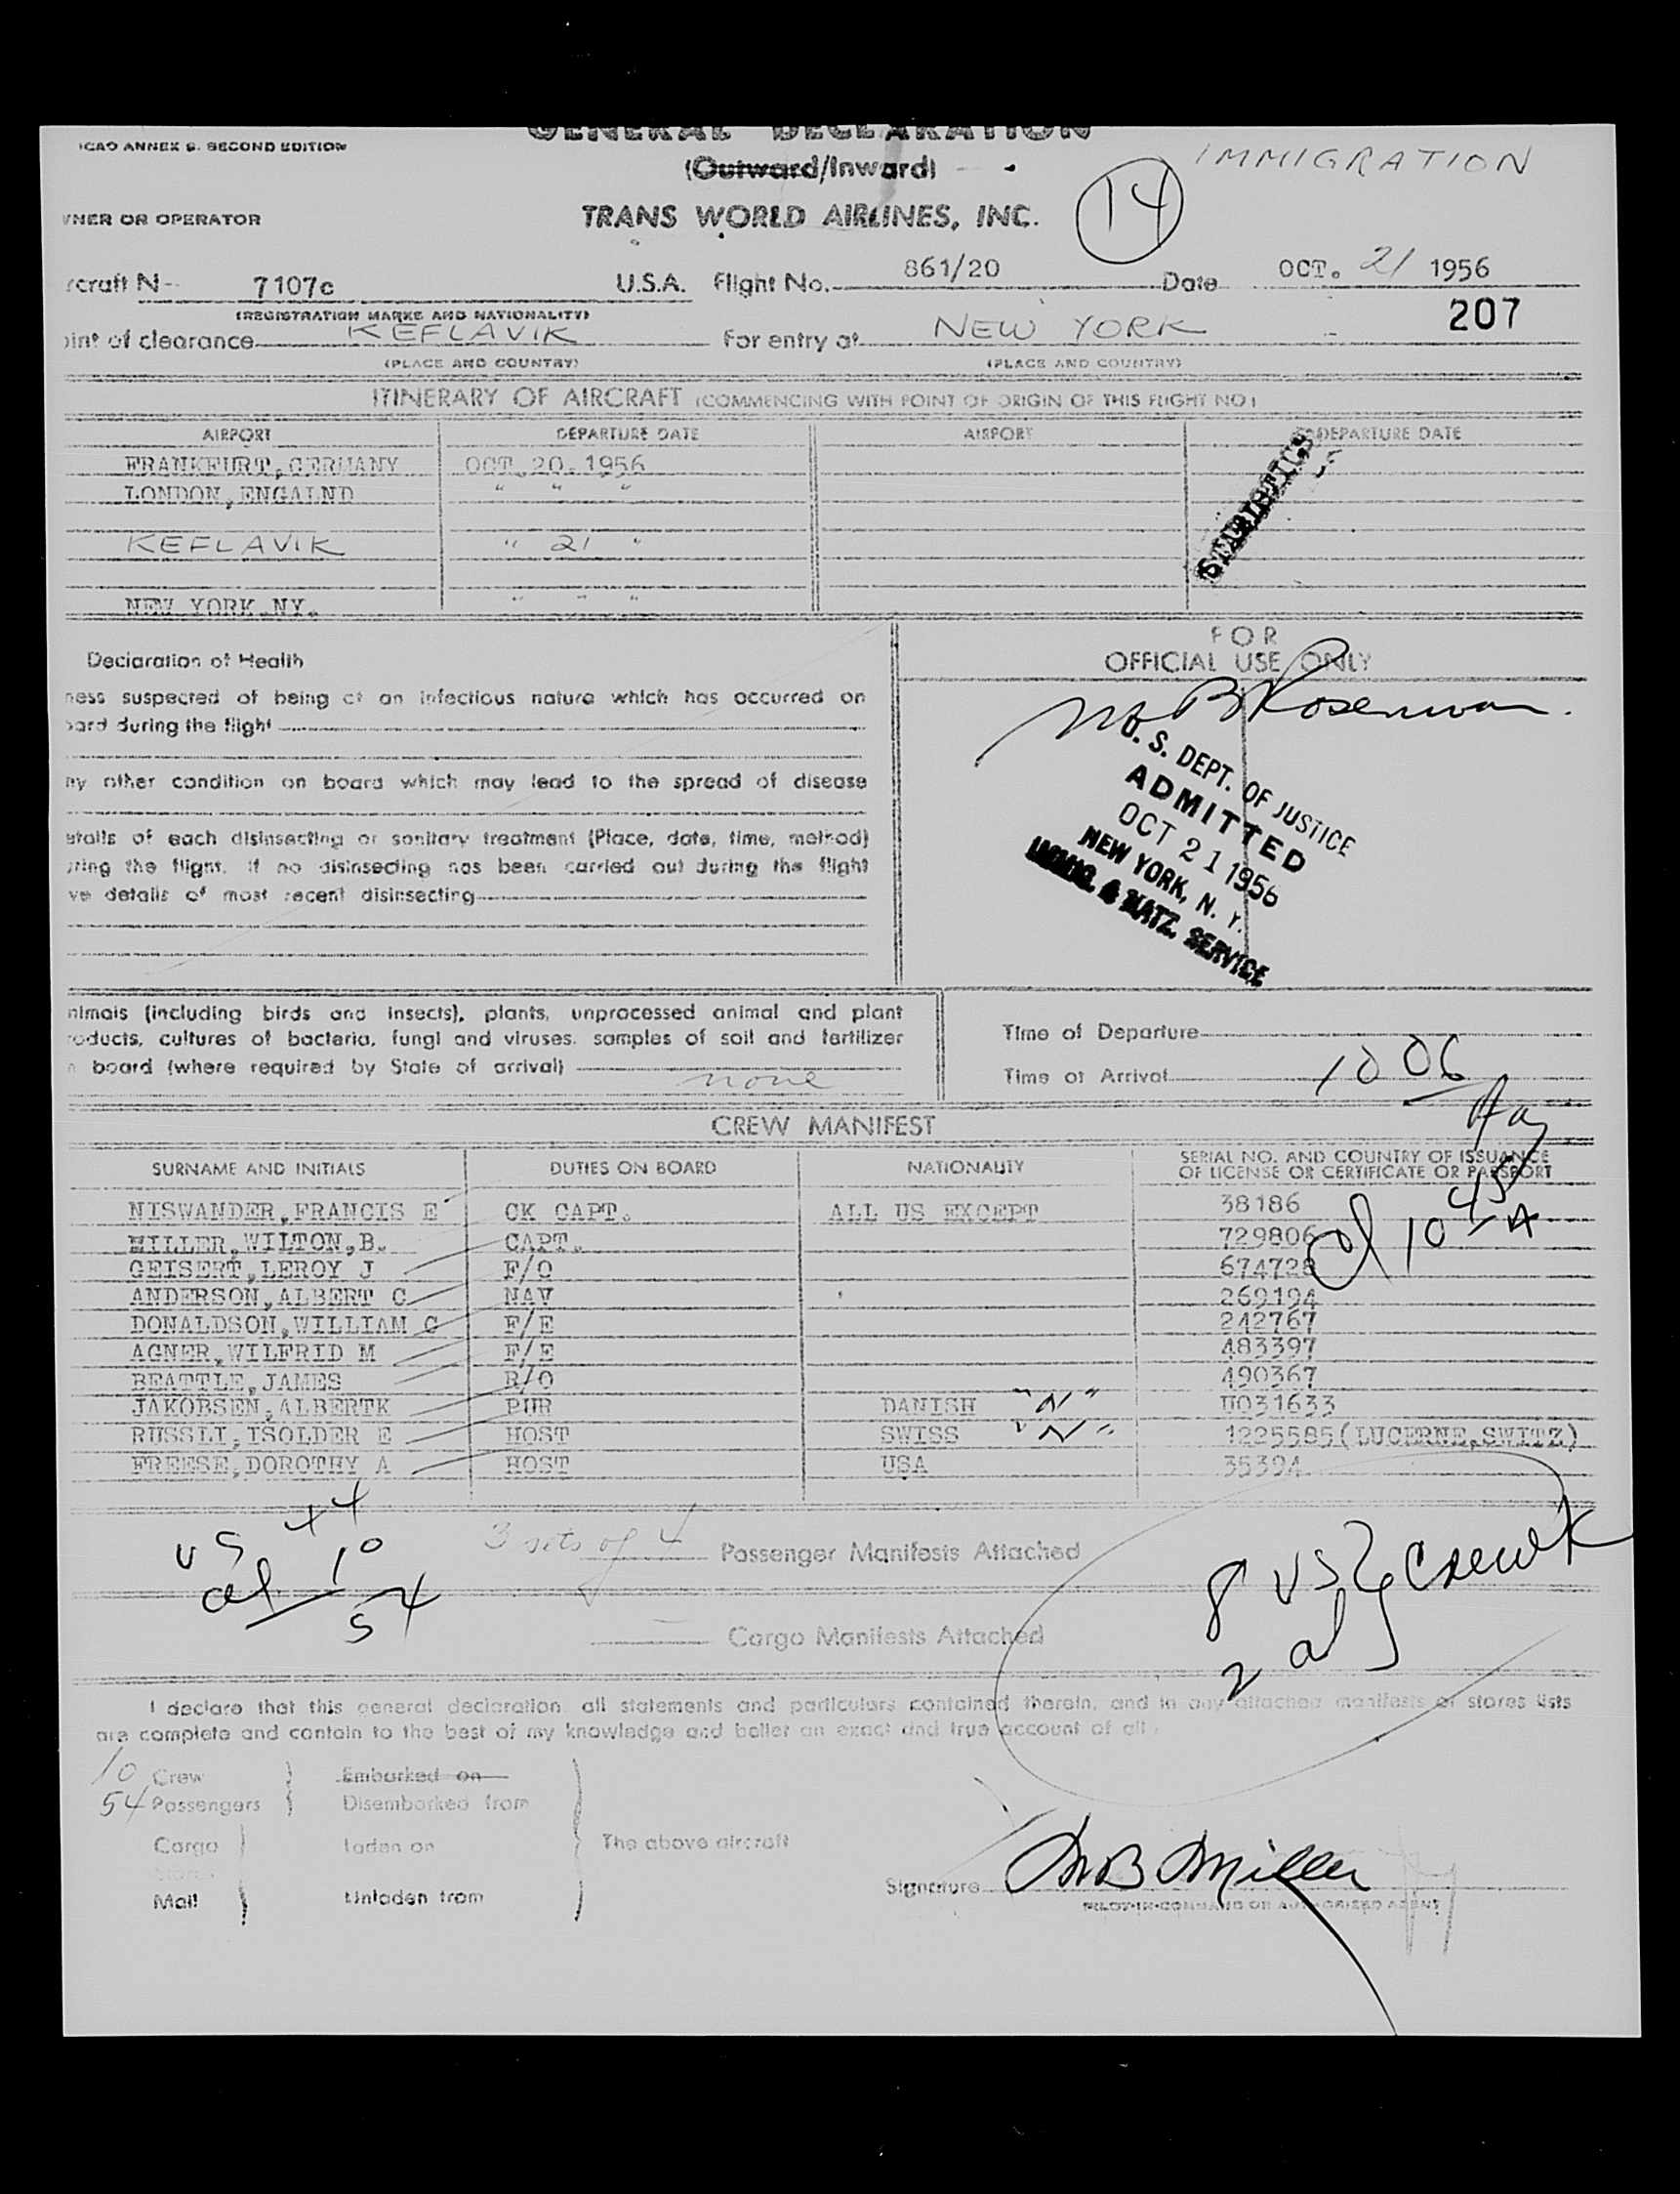 GENERAL DECLARATION
ICAO ANNEX 9. SECOND EDITION
(Outward/Inward)
IMMIGRATION
14
WNER OR OPERATOR
TRANS WORLD AIRLINES, INC.
rcraft N- 7107c U.S.A. Flight No. 861/20 Date OCT. 21 1956
(REGISTRATION MARKS AND NATIONALITY)
207
oint of clearance KEFLAVIK For entry at NEW YORK
(PLACE AND COUNTRY) (PLACE AND COUNTRY)
ITINERARY OF AIRCRAFT (COMMENCING WITH POINT OF ORIGIN OF THIS FLIGHT NO)
AIRPORT DEPARTURE DATE AIRPORT DEPARTURE DATE
FRANKFURT, GERMANY OCT. 20. 1956
LONDON, ENGALND " " "
STATISTICS
KEFLAVIK " 21 "
NEW YORK.NY. " " "
Declaration of Health
ness suspected of being of an infectious nature which has occurred on
oard during the flight
ny other condition on board which may lead to the spread of disease
etails of each disinsecting or sanitary treatment (Place, date, time, method)
uring the flight. If no disinsecting has been carried out during the flight
ve details of most recent disinsecting
FOR
OFFICIAL USE ONLY
Rosenman.
U. S. DEPT. OF JUSTICE
ADMITTED
OCT 21 1956
NEW YORK, N. Y.
IMMIG. & NATZ. SERVICE
nimals (including birds and insects), plants, unprocessed animal and plant
roducts, cultures of bacteria, fungi and viruses. samples of soil and fertilizer
n board (where required by State of arrival) none
Time of Departure
Time of Arrival 10 06
CREW MANIFEST
SURNAME AND INITIALS DUTIES ON BOARD NATIONALITY SERIAL NO. AND COUNTRY OF ISSUANCE
OF LICENSE OR CERTIFICATE OR PASSPORT
NISWANDER, FRANCIS E CK CAPT. ALL US EXCEPT 38186
MILLER, WILTON, B. CAPT. 729806
GEISERT, LEROY J F/O 674728
ANDERSON, ALBERT C NAV 269194
DONALDSON, WILLIAM G F/E 242767
AGNER, WILFRID M F/E 483397
BEATTLE, JAMES R/O 490367
JAKOBSEN, ALBERTK PUR DANISH "N" U031633
RUSSLI, ISOLDER E HOST SWISS "N" 1225585(LUCERNE, SWITZ)
FREESE, DOROTHY A HOST USA 35394
10 45 A
US 44
al 10
54
3 sets of 4 Passenger Manifests Attached
8 US } Crew
2 al
Cargo Manifests Attached
I declare that this general declaration all statements and particulars contained therein, and in any attached manifests or stores lists
are complete and contain to the best of my knowledge and belief an exact and true account of all
10 Crew Embarked on
54 Passengers Disembarked from
Cargo Laden on The above aircraft
Stores
Mail Unladen from
Signature W B Miller
PILOT-IN-COMMAND OR AUTHORISED AGENT